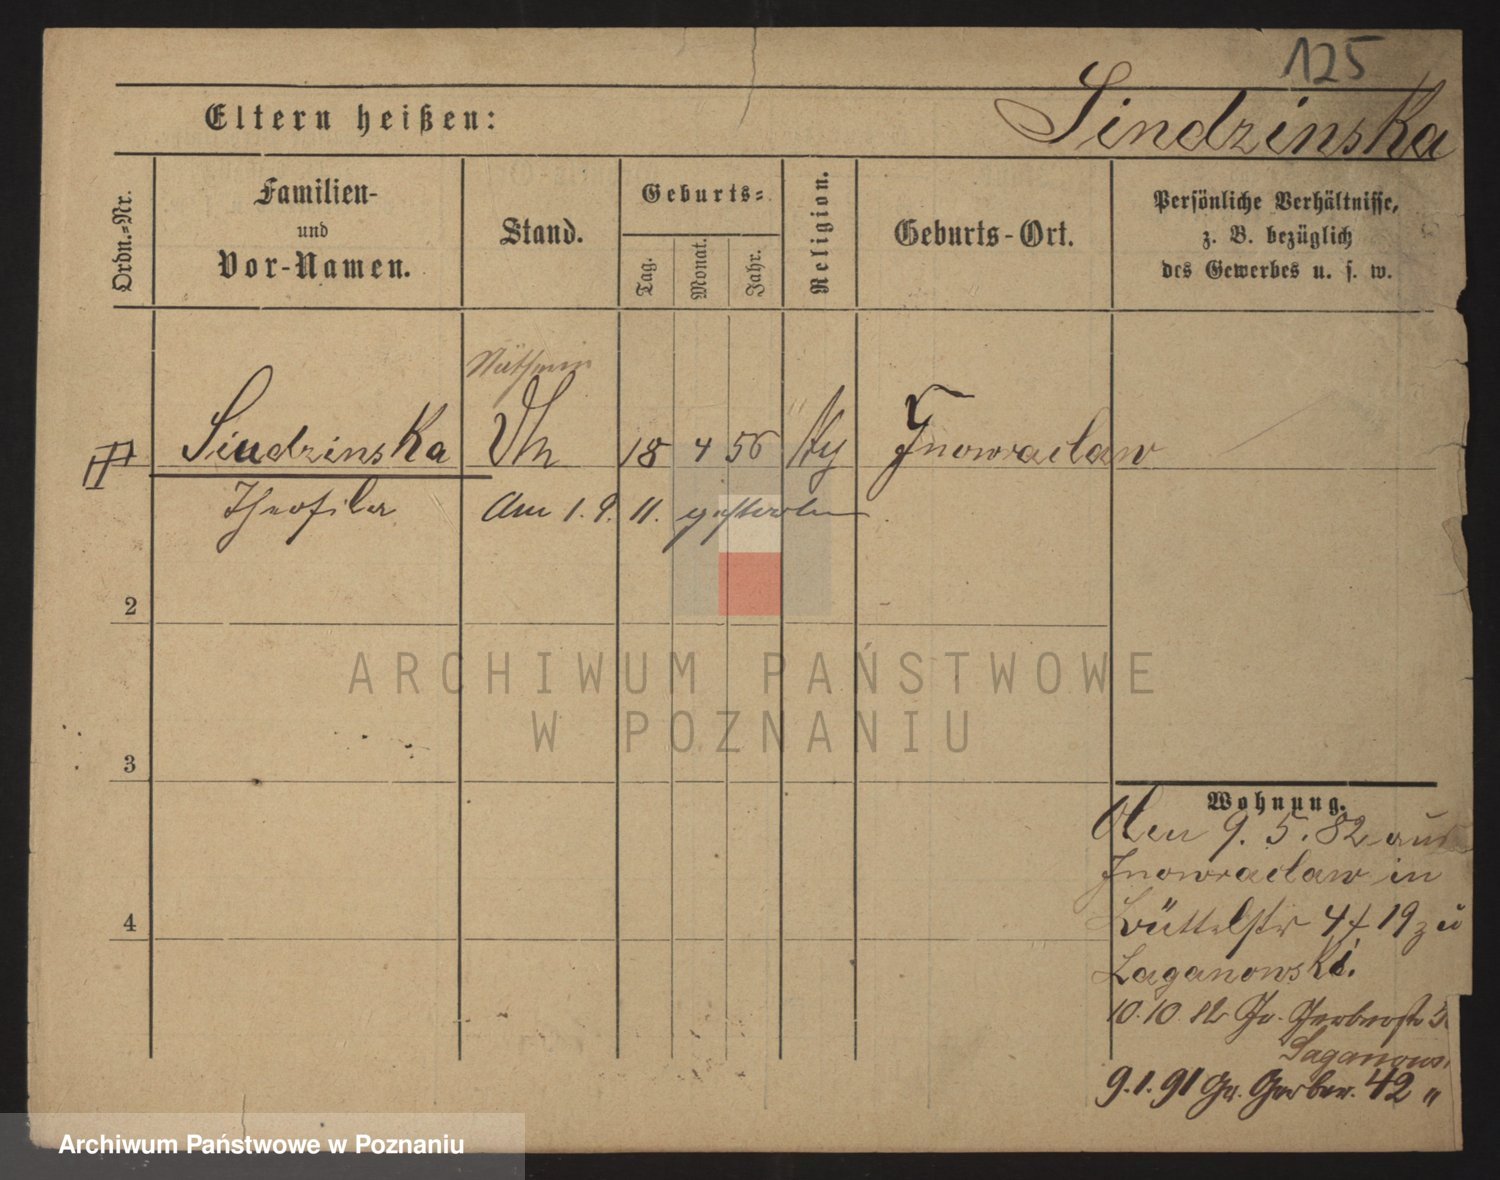 125
Eltern heißen:
Sindzinska
Ordn.-Nr.
Familien-
und
Vor-Namen.
Stand.
Geburts-
Tag.
Monat.
Jahr.
Religion.
Geburts-Ort.
Persönliche Verhältnisse,
z. B. bezüglich
des Gewerbes u. s. w.
Sindzinska
18 4 56
Inowraclaw
Theofila
Am 1. 9. 11. gestorben
2
3
4
ARCHIWUM PAŃSTWOWE
W POZNANIU
Wohnung.
Den 9. 5. 82 aus
Inowraclaw in
Büttelstr 19 zu
Laganowski.
10. 10. 82 Gr. Gerberstr
Laganows
9. 1. 91 Gr. Gerber. 42 "
Archiwum Państwowe w Poznaniu